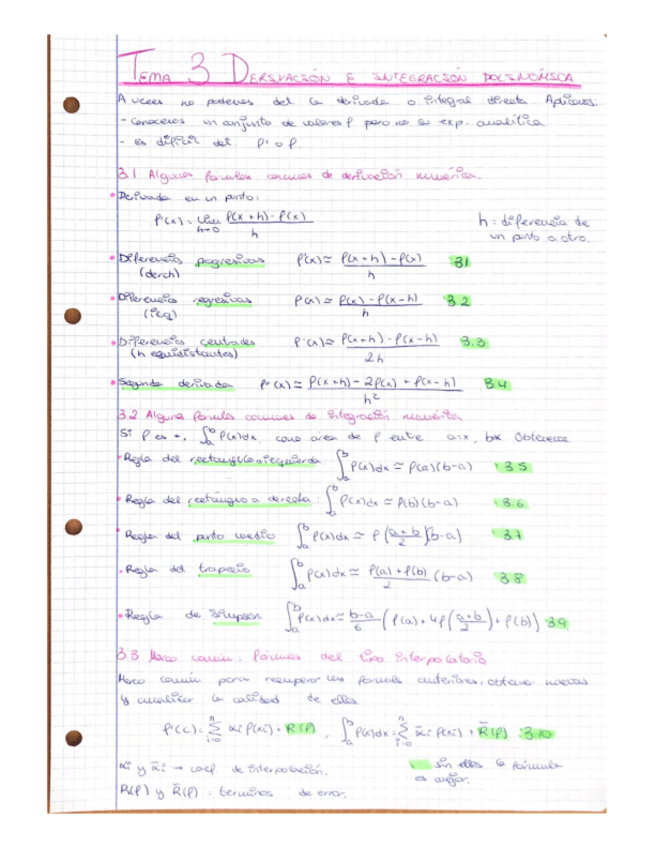 TEMA 3 DERIVACIÓN E INTEGRACIÓN POLINÓMICA
A veces no podemos det la derivada o integral directa Aplicamos:
- Conocemos un conjunto de valores f pero no su exp. analítica
- es difícil det. f' o f
3.1 Algunas fórmulas comunes de derivación numérica.
• Derivada en un punto:
f'(x) = lim h→0 (f(x+h) - f(x))/h
h = diferencia de
un punto a otro.
• Diferencias progresivas f'(x) ≃ (f(x+h) - f(x))/h 3.1
(derch)
• Diferencias regresivas f'(x) ≃ (f(x) - f(x-h))/h 3.2
(izq)
• Diferencias centradas f'(x) ≃ (f(x+h) - f(x-h))/2h 3.3
(h equidistantes)
• Segunda derivada f''(x) ≃ (f(x+h) - 2f(x) + f(x-h))/h² 3.4
3.2 Alguna fórmulas comunes de integración numérica
Si f es +, ∫ₐᵇ f(x)dx, como area de f entre a=x, b=x Obtenemos
• Regla del rectangulo a izquierda: ∫ₐᵇ f(x)dx ≃ f(a)(b-a) 3.5
• Regla del rectángulo a derecha: ∫ₐᵇ f(x)dx ≃ f(b)(b-a) 3.6
• Regla del punto medio ∫ₐᵇ f(x)dx ≃ f((a+b)/2)(b-a) 3.7
• Regla del trapecio ∫ₐᵇ f(x)dx ≃ (f(a)+f(b))/2 (b-a) 3.8
• Regla de Simpson ∫ₐᵇ f(x)dx ≃ (b-a)/6 (f(a) + 4f((a+b)/2) + f(b)) 3.9
3.3 Marco común. Fórmulas del tipo interpolatorio
Marco común para recuperar las formulas anteriores, obtener nuevas
y analizar la calidad de ellas.
f'(c) = Σⁿᵢ₌₀ αi f(xi) + R(f), ∫ₐᵇ f(x)dx = Σⁿᵢ₌₀ ᾱi f(xi) + R̄(f) 3.10
αi y ᾱi → coef. de interpolación.
sin ellos la fórmula
es mejor.
R(f) y R̄(f): terminos de error.